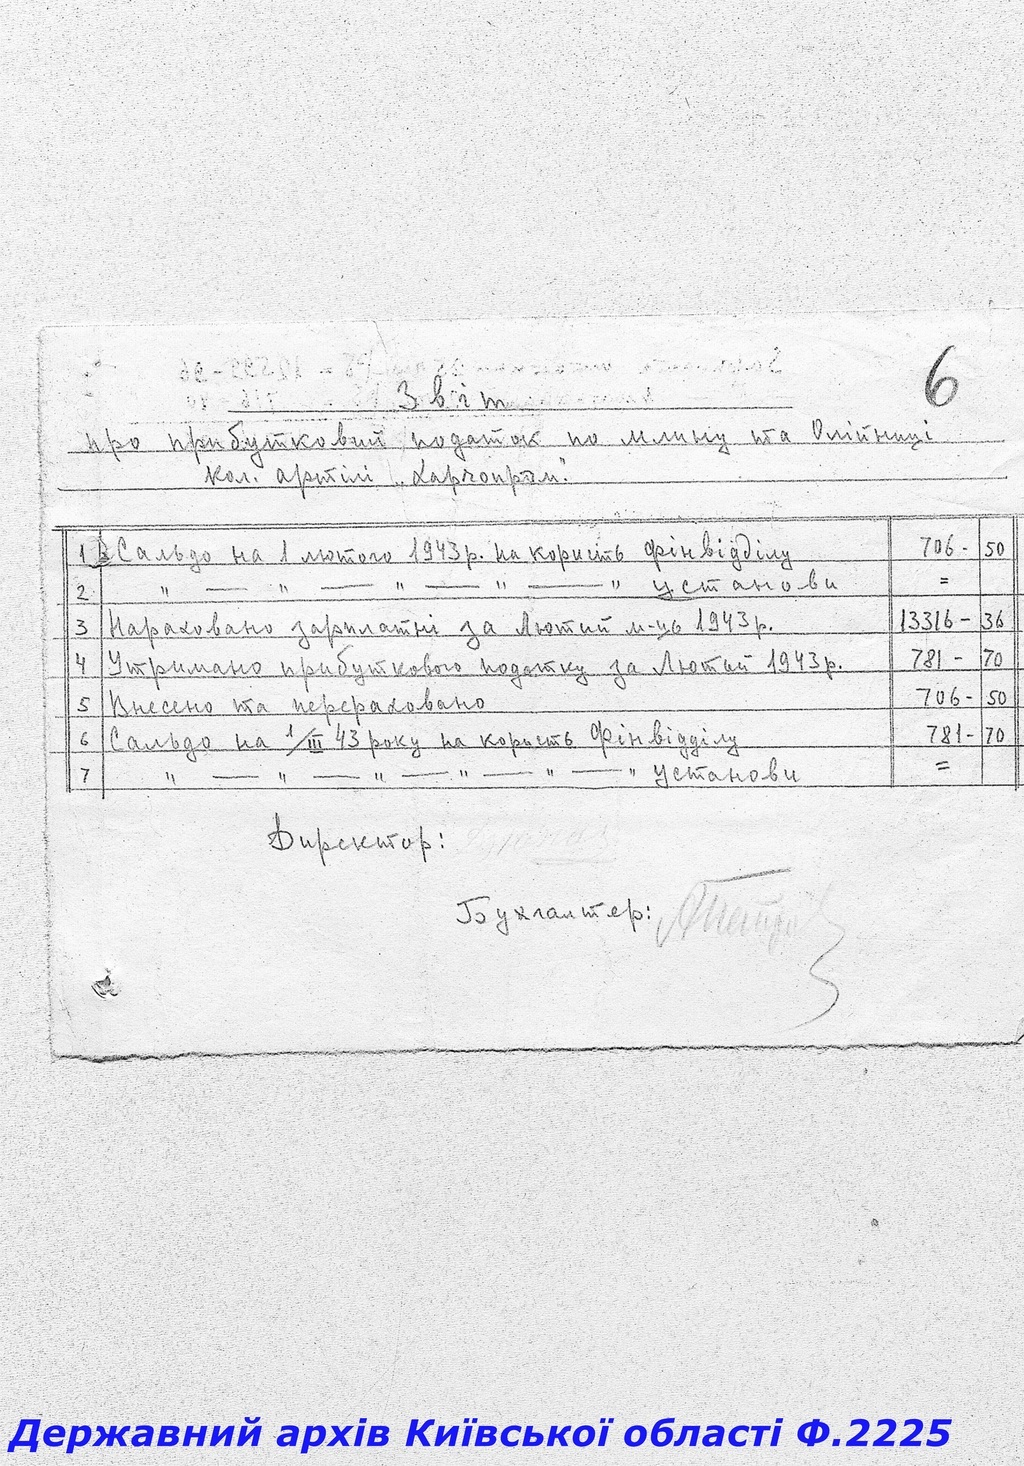 6
Звіт
про прибутковий податок по млину та Олійниці
кол. артілі „Харчопром".
1 Сальдо на 1 лютого 1943 р. на користь Фінвідділу 706- 50
2 " — " — " — " — " установи =
3 Нараховано зарплатні за Лютий м-ць 1943 р. 13316- 36
4 Утримано прибуткового податку за Лютий 1943 р. 781- 70
5 Внесено та перераховано 706- 50
6 Сальдо на 1/III 43 року на користь Фінвідділу 781- 70
7 " — " — " — " — " — " установи =
Директор:
Бухгалтер:
Державний архів Київської області Ф.2225